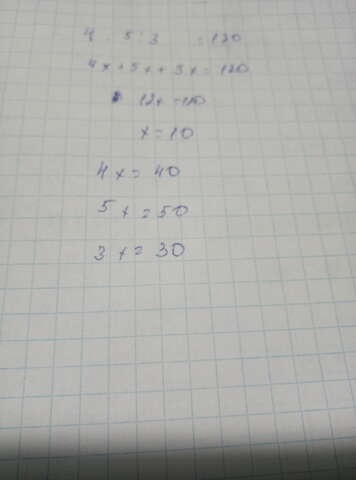 4 : 5 : 3 = 120
4x + 5x + 3x = 120
12x = 120
x = 10
4x = 40
5x = 50
3x = 30